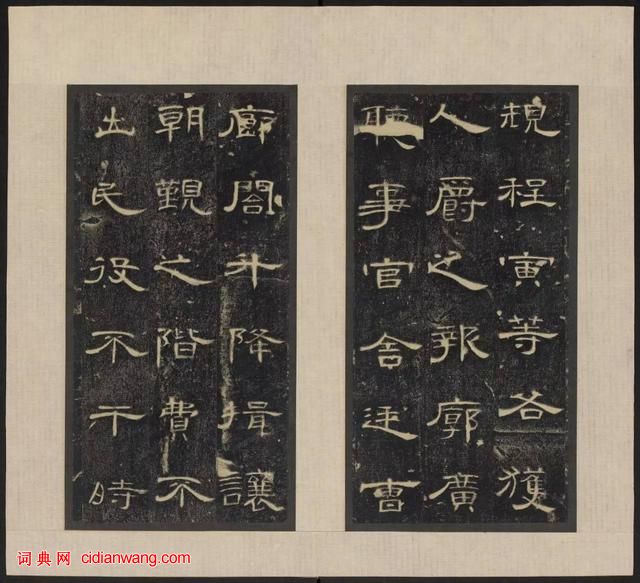 規程寅等各獲
人爵之報廓廣
聽事官舍廷曹
廊閤升降揖讓
朝覲之階費不
出民役不干時
词典网 cidianwang.com